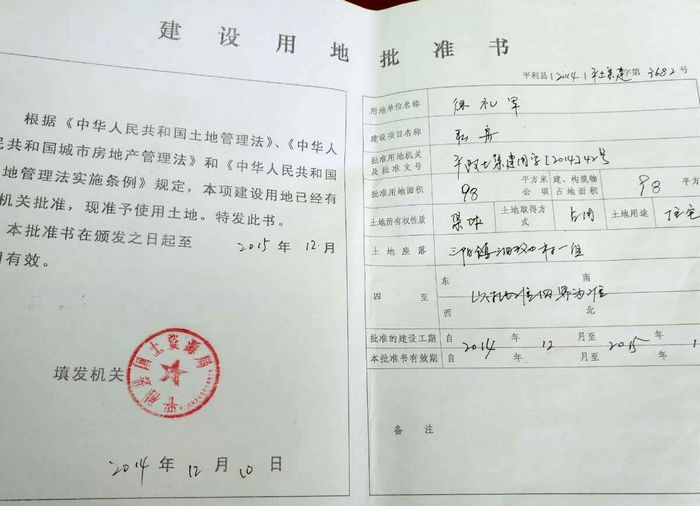 建设用地批准书
根据《中华人民共和国土地管理法》、《中华人
民共和国城市房地产管理法》和《中华人民共和国
地管理法实施条例》规定，本项建设用地已经有
机关批准，现准予使用土地。特发此书。
本批准书在颁发之日起至 2015 年 12 月
有效。
填发机关
平利县国土资源局
2014 年 12 月 10 日
平利县〔2014〕平土集建字第 3682 号
用地单位名称 徐礼军
建设项目名称
批准用地机关及批准文号 平政土集建用字[2014]42号
批准用地面积 98 平方米 公顷 建、构筑物占地面积 98 平方
土地所有权性质 集体 土地取得方式 占用 土地用途 住宅
土地座落 三阳镇 村一组
四至 东 南 西 北
批准的建设工期 自 2014 年 12 月至 2015 年 1
本批准书有效期 自 年 月至 年
备注